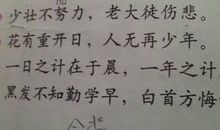 少壮不努力，老大徒伤悲。
花有重开日，人无再少年。
一日之计在于晨，一年之计
黑发不知勤学早，白首方悔